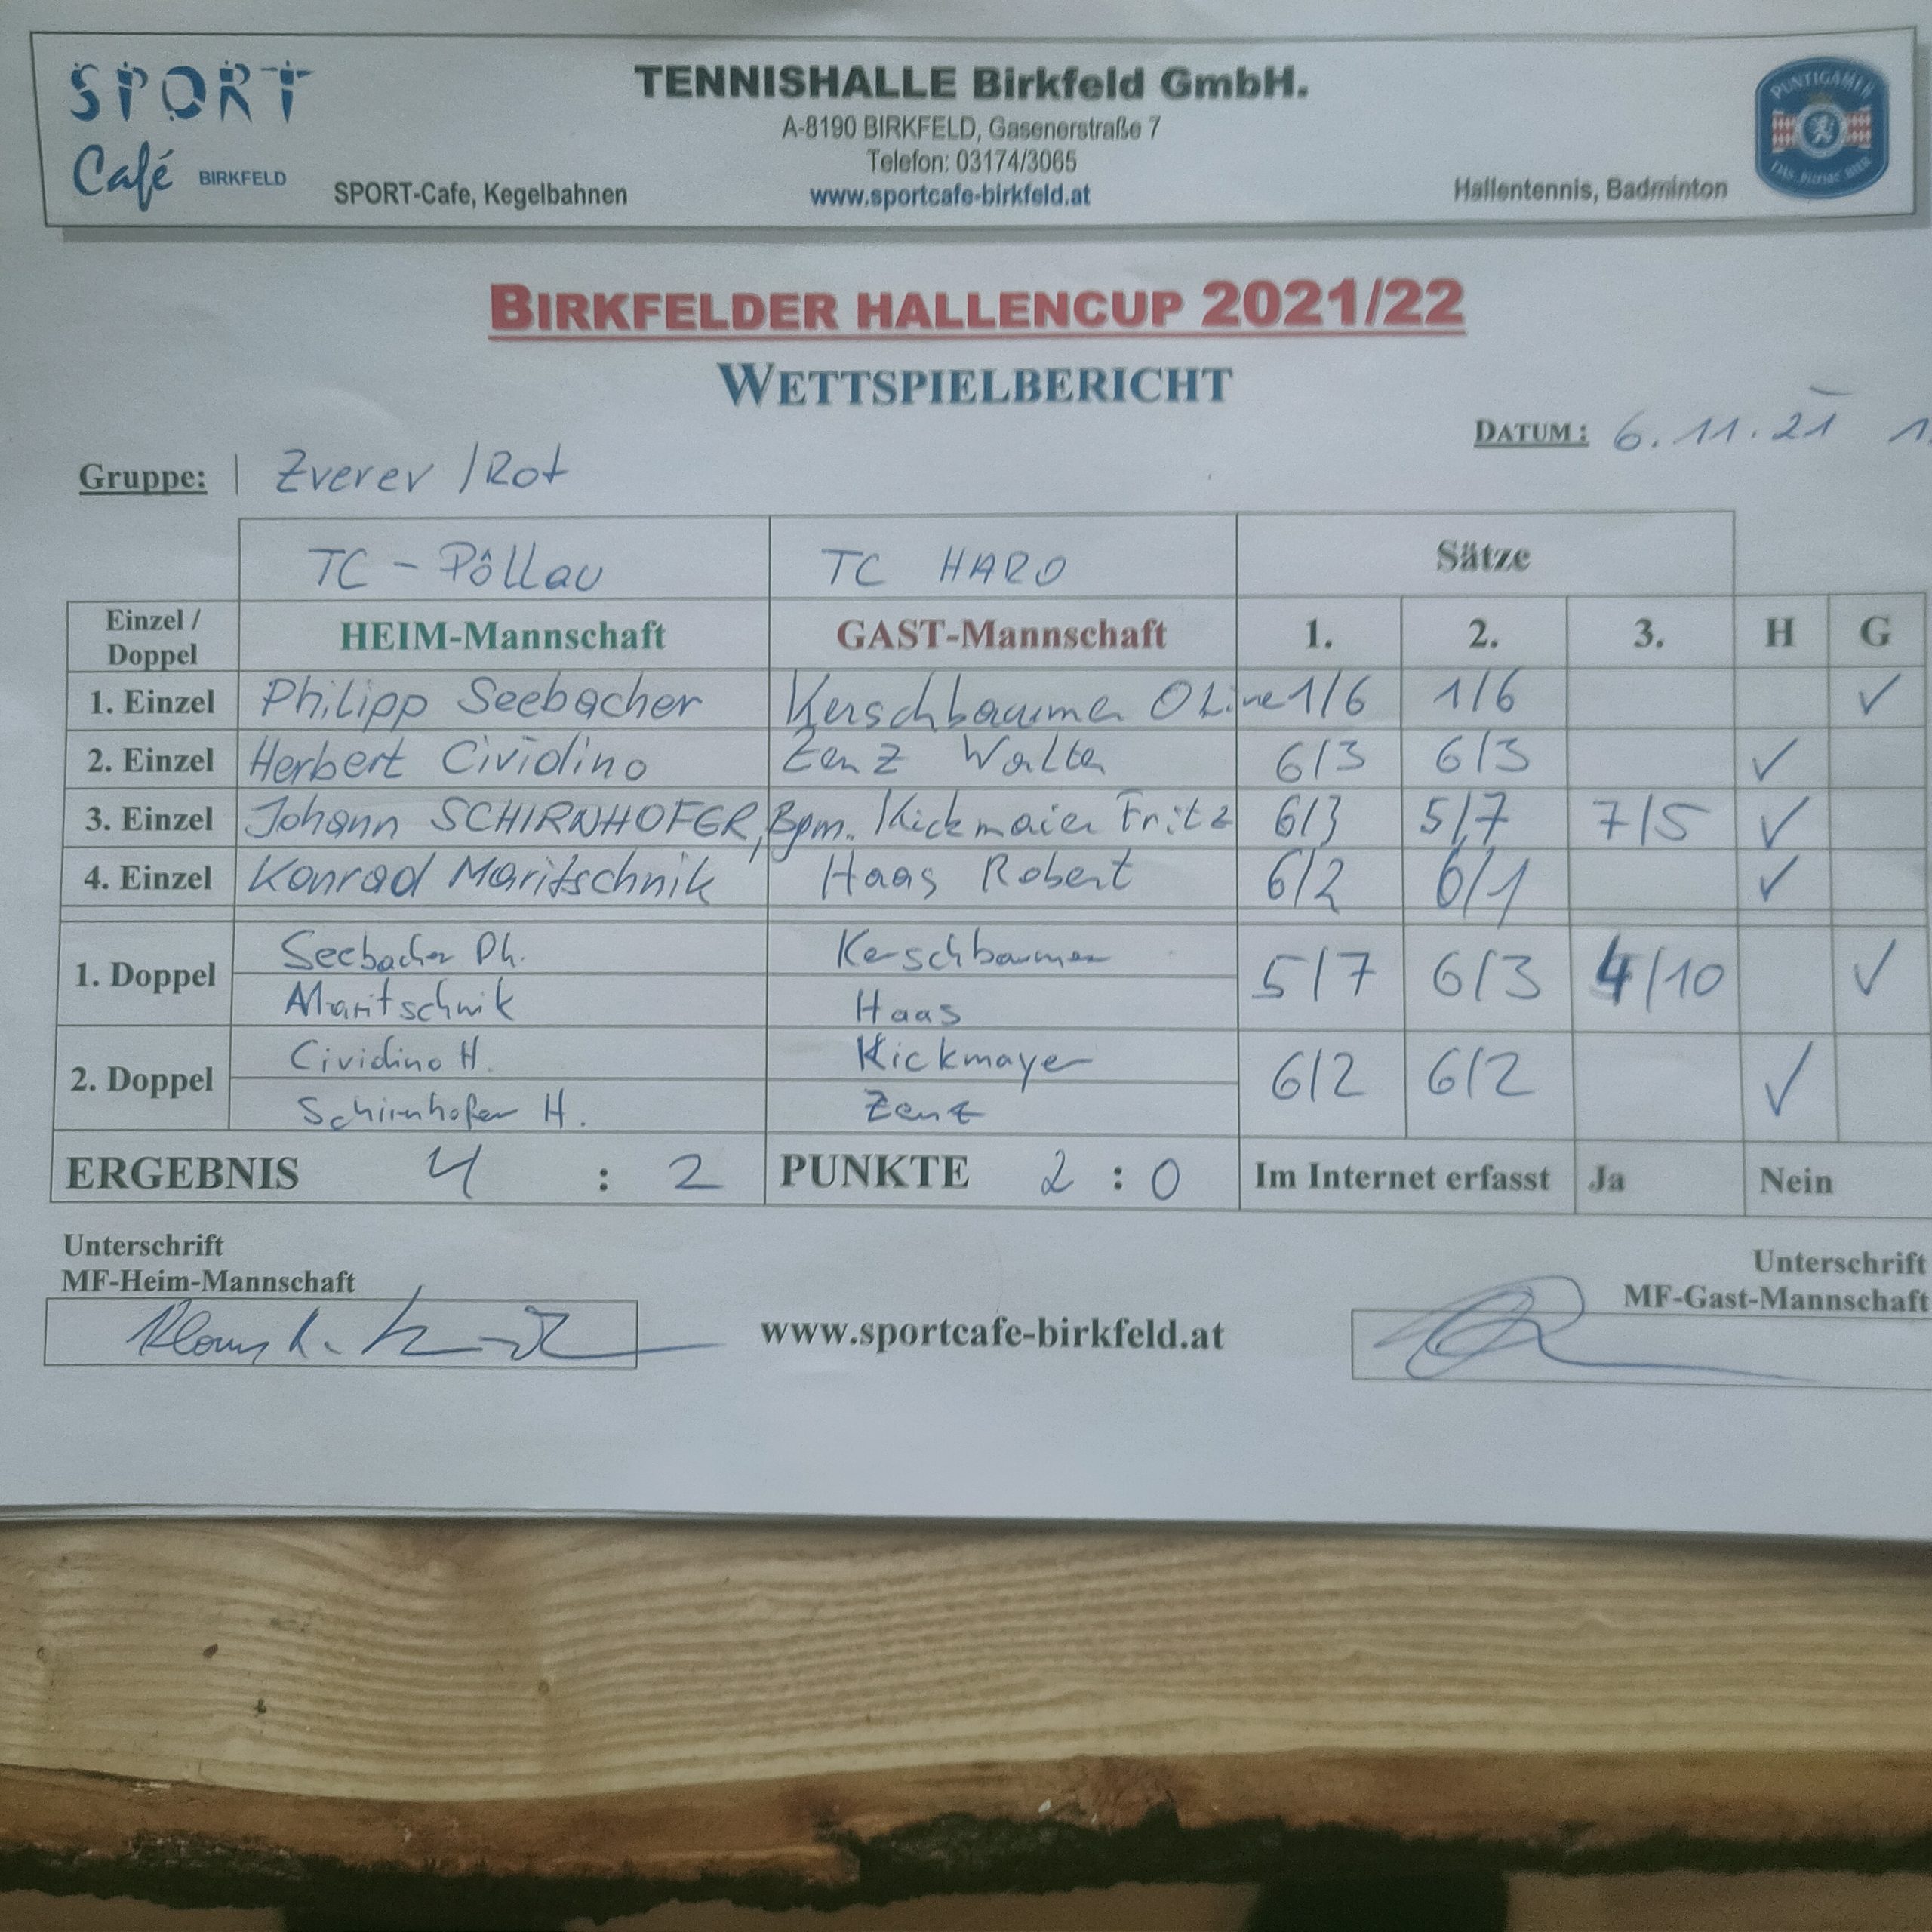 SPORT
Café BIRKFELD
SPORT-Cafe, Kegelbahnen
TENNISHALLE Birkfeld GmbH.
A-8190 BIRKFELD, Gasenerstraße 7
Telefon: 03174/3065
www.sportcafe-birkfeld.at
Hallentennis, Badminton
PUNTIGAMER
BIRKFELDER HALLENCUP 2021/22
WETTSPIELBERICHT
DATUM: 6.11.21
Gruppe: Zverev /Rot
TC - Pöllau TC HARO Sätze
Einzel / Doppel HEIM-Mannschaft GAST-Mannschaft 1. 2. 3. H G
1. Einzel Philipp Seebacher Kerschbaumer 1/6 1/6 ✓
2. Einzel Herbert Cividino Zenz Walter 6/3 6/3 ✓
3. Einzel Johann SCHIRNHOFER, Bpm. Kickmaier Fritz 6/3 5/7 7/5 ✓
4. Einzel Konrad Maritschnik Haas Robert 6/2 6/1 ✓
1. Doppel Seebacher Ph. Kerschbaumer 5/7 6/3 4/10 ✓
Maritschnik Haas
2. Doppel Cividino H. Kickmayer 6/2 6/2 ✓
Schirnhofer H. Zenz
ERGEBNIS 4 : 2 PUNKTE 2 : 0 Im Internet erfasst Ja Nein
Unterschrift
MF-Heim-Mannschaft
www.sportcafe-birkfeld.at
Unterschrift
MF-Gast-Mannschaft